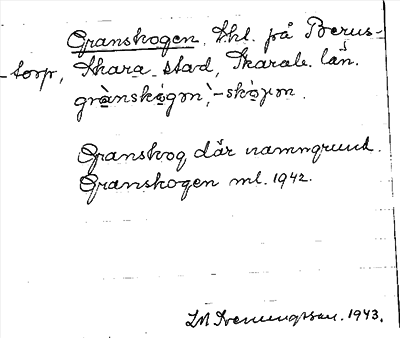 Granskogen, lhl. på Berus-
torp, Skara stad, Skarab. län.
grànskógən, -skóɣən.
Granskog där namngrund.
Granskogen ml. 1942.
1943.